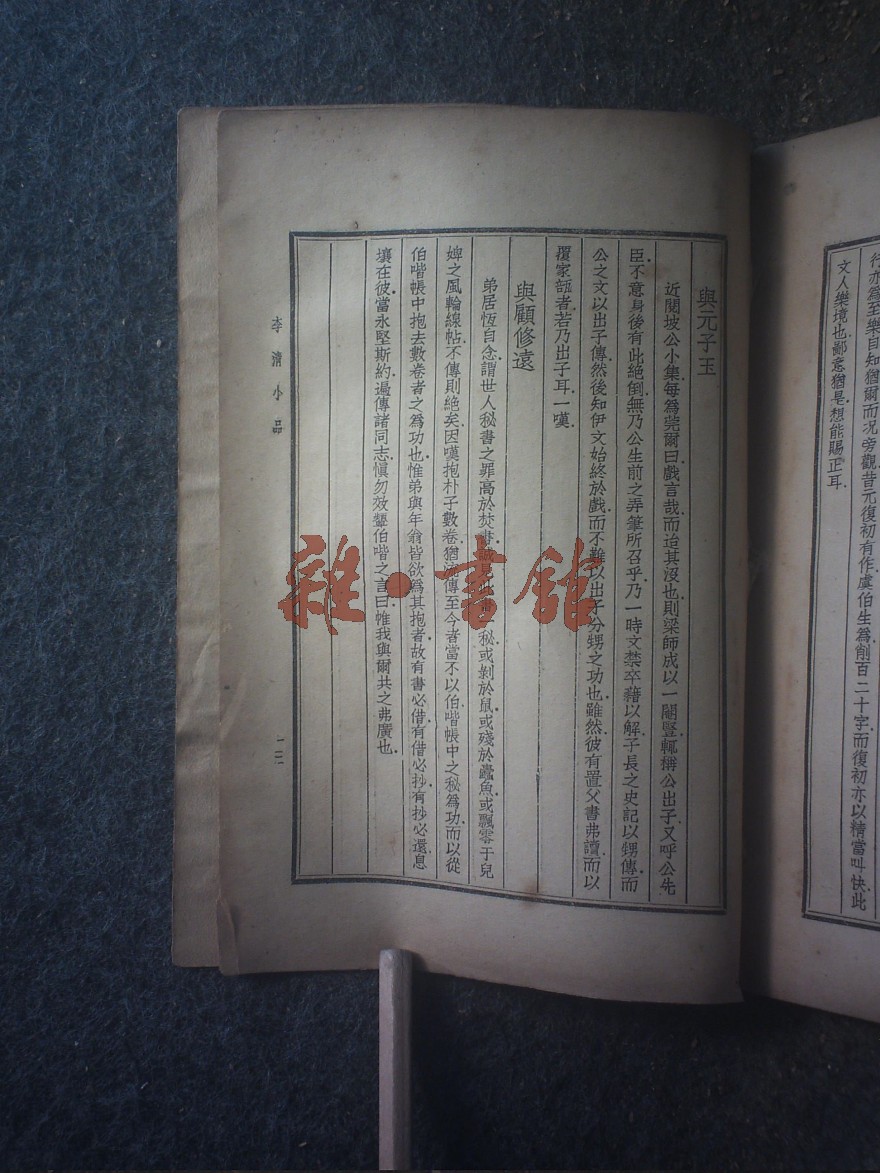 行亦爲至樂自知猶爾而况旁觀昔元復初有作虞伯生爲削百二十字而復初亦以精當叫快此
文人樂境也鄙意猶是想能賜正耳
與元子玉
近閱坡公小集每爲莞爾曰戲言哉而迨其沒也則梁師成以一閹豎輒稱公出子又呼公先
臣不意身後有此絕倒無乃公生前之弄筆所召乎乃一時文禁卒藉以解子長之史記以甥傳而
公之文以出子傳然後知伊文始終於戲而不難以出子分甥之功也雖然彼有置父書弗讀而以
覆家瓿者若乃出子耳一嘆
與顧修遠
弟居恆自念謂世人秘書之罪高於焚書誠見此秘或剝於鼠或殘於蠹魚或飄零于兒
婢之風輪線帖不傳則絕矣因嘆抱朴子數卷猶流傳至今者當不以伯喈帳中之秘爲功而以從
伯喈帳中抱去數卷者之爲功也惟弟與年翁皆欲爲其抱者故有書必借有借必抄有抄必還息
壤在彼當永堅斯約遍傳諸同志愼勿效顰伯喈之言曰惟我與爾共之弗廣也
李清小品
一二
雜·書館